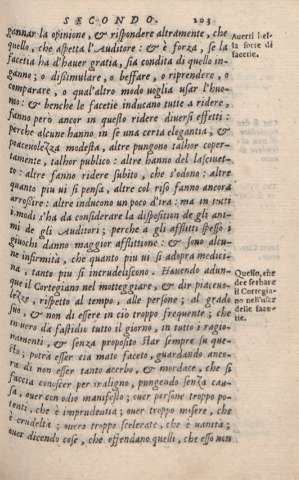 SECONDO. 203
gannar la opinione, & rispondere altramente, che
quello, che aspetta l'Auditore: & è forza, se la
facetia ha d'hauer gratia, sia condita di quello in-
ganno; o dissimulare, o beffare, o riprendere, o
comparare, o qual'altro modo uoglia usar l'huo-
mo: & benche le facetie inducano tutte a ridere,
fanno però ancor in questo ridere diuersi effetti:
perche alcune hanno in se una certa elegantia, &
piaceuolezza modesta, altre pungono talhor coper-
tamente, talhor publico: altre hanno del lasciuet-
to: altre fanno ridere subito, che s'odono: altre
quanto piu ui si pensa, altre col riso fanno ancora
arrossire: altre inducono un poco d'ira: ma in tutti
i modi s'ha da considerare la disposition de gli ani-
mi de gli Auditori; perche a gli afflitti spesso i
giuochi danno maggior afflittione: & sono alcu-
ne infirmità, che quanto piu ui si adopra medici-
na, tanto piu si incrudeliscono. Hauendo adun-
que il Cortegiano nel motteggiare, & dir piaceuo-
lezze, rispetto al tempo, alle persone; al grado
suo, & di non essere in ciò troppo frequente; che
in uero dà fastidio tutto il giorno, in tutti i ragio-
namenti, & senza proposito star sempre su que-
sto; potrà esser chiamato faceto, guardando anco-
ra di non esser tanto acerbo, & mordace, che si
faccia conoscer per maligno, pungendo senza cau-
sa, ouer con odio manifesto; ouer persone troppo po-
tenti, che è imprudentia; ouer troppo misere, che
è crudeltà; ouero troppo scelerate, che è uanità;
ouer dicendo cose, che offendano quelli, che esso non
Auerti
la sorte di
facetie.
Quello, che
dee serbare
il Cortegia-
no nell'usar
delle facetie.